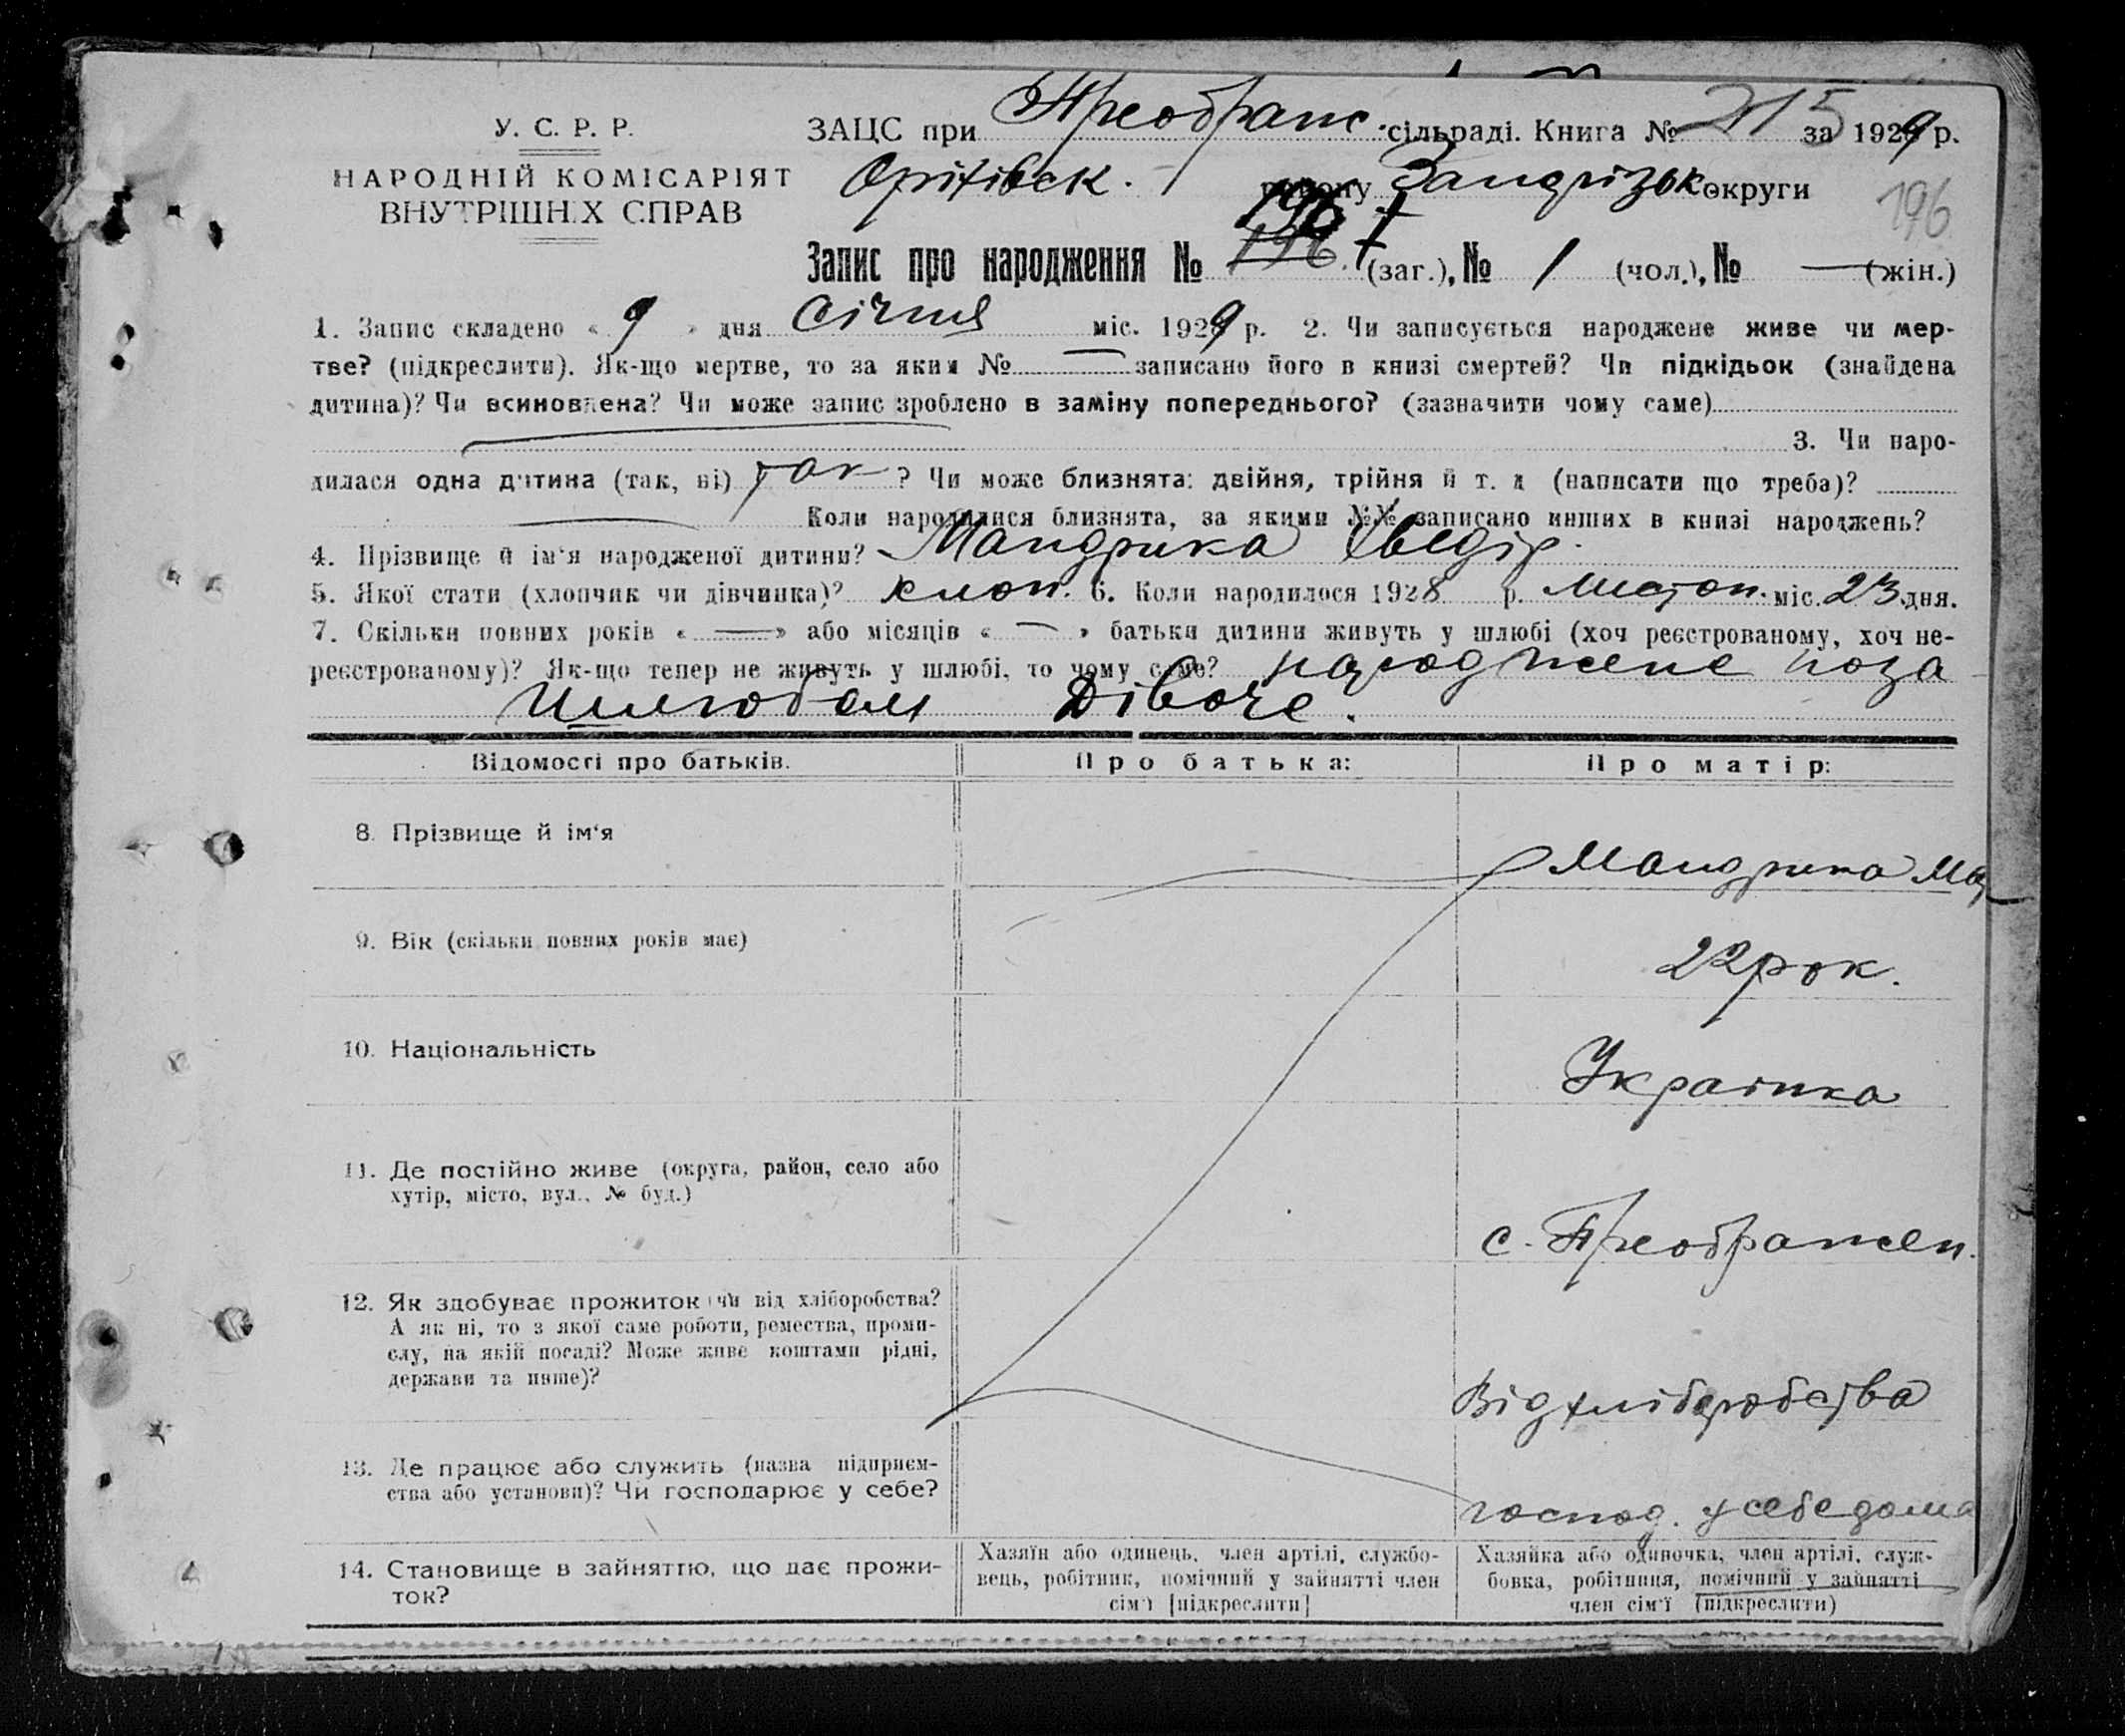 У. С. Р. Р.
НАРОДНІЙ КОМІСАРІЯТ
ВНУТРІШНІХ СПРАВ
ЗАЦС при Преображ. сільраді. Книга № 215 за 1929 р.
Оріхівськ. району Запорізьк округи
196
Запис про народження № 196 1 (заг.), № 1 (чол.), № — (жін.)
1. Запис складено « 9 » дня Січня міс. 1929 р. 2. Чи записується народжене живе чи мер-
тве? (підкреслити). Як-що мертве, то за яким № — записано його в книзі смертей? Чи підкідьок (знайдена
дитина)? Чи всиновлена? Чи може запис зроблено в заміну попереднього? (зазначити чому саме)
3. Чи наро-
дилася одна дитина (так, ні) так ? Чи може близнята: двійня, трійня й т. д (написати що треба)?
— Коли народилися близнята, за якими №№ записано инших в книзі народжень?
4. Прізвище й ім'я народженої дитини? Мандрика Хведір.
5. Якої стати (хлопчик чи дівчинка)? хлоп. 6. Коли народилося 1928 р. Листоп. міс. 23 дня.
7. Скільки повних років « — » або місяців « — » батьки дитини живуть у шлюбі (хоч реєстрованому, хоч не-
реєстрованому)? Як-що тепер не живуть у шлюбі, то чому саме? народжене поза
шлюбом Дівоче.
Відомості про батьків.
Про батька:
Про матір:
8. Прізвище й ім'я
Мандрика
9. Вік (скільки повних років має)
22 рок.
10. Національність
Українка
11. Де постійно живе (округа, район, село або
хутір, місто, вул., № буд.)
с. Преображен.
12. Як здобуває прожиток (чи від хліборобства?
А як ні, то з якої саме роботи, ремества, проми-
слу, на якій посаді? Може живе коштами рідні,
держави та инше)?
Від хліборобства
13. Де працює або служить (назва підприєм-
ства або установи)? Чи господарює у себе?
господ. у себе дома
14. Становище в зайняттю, що дає прожи-
ток?
Хазяїн або одинець, член артілі, службо-
вець, робітник, помічний у зайнятті член
сім'ї [підкреслити]
Хазяйка або одиночка, член артілі, служ-
бовка, робітниця, помічний у зайнятті
член сім'ї (підкреслити)